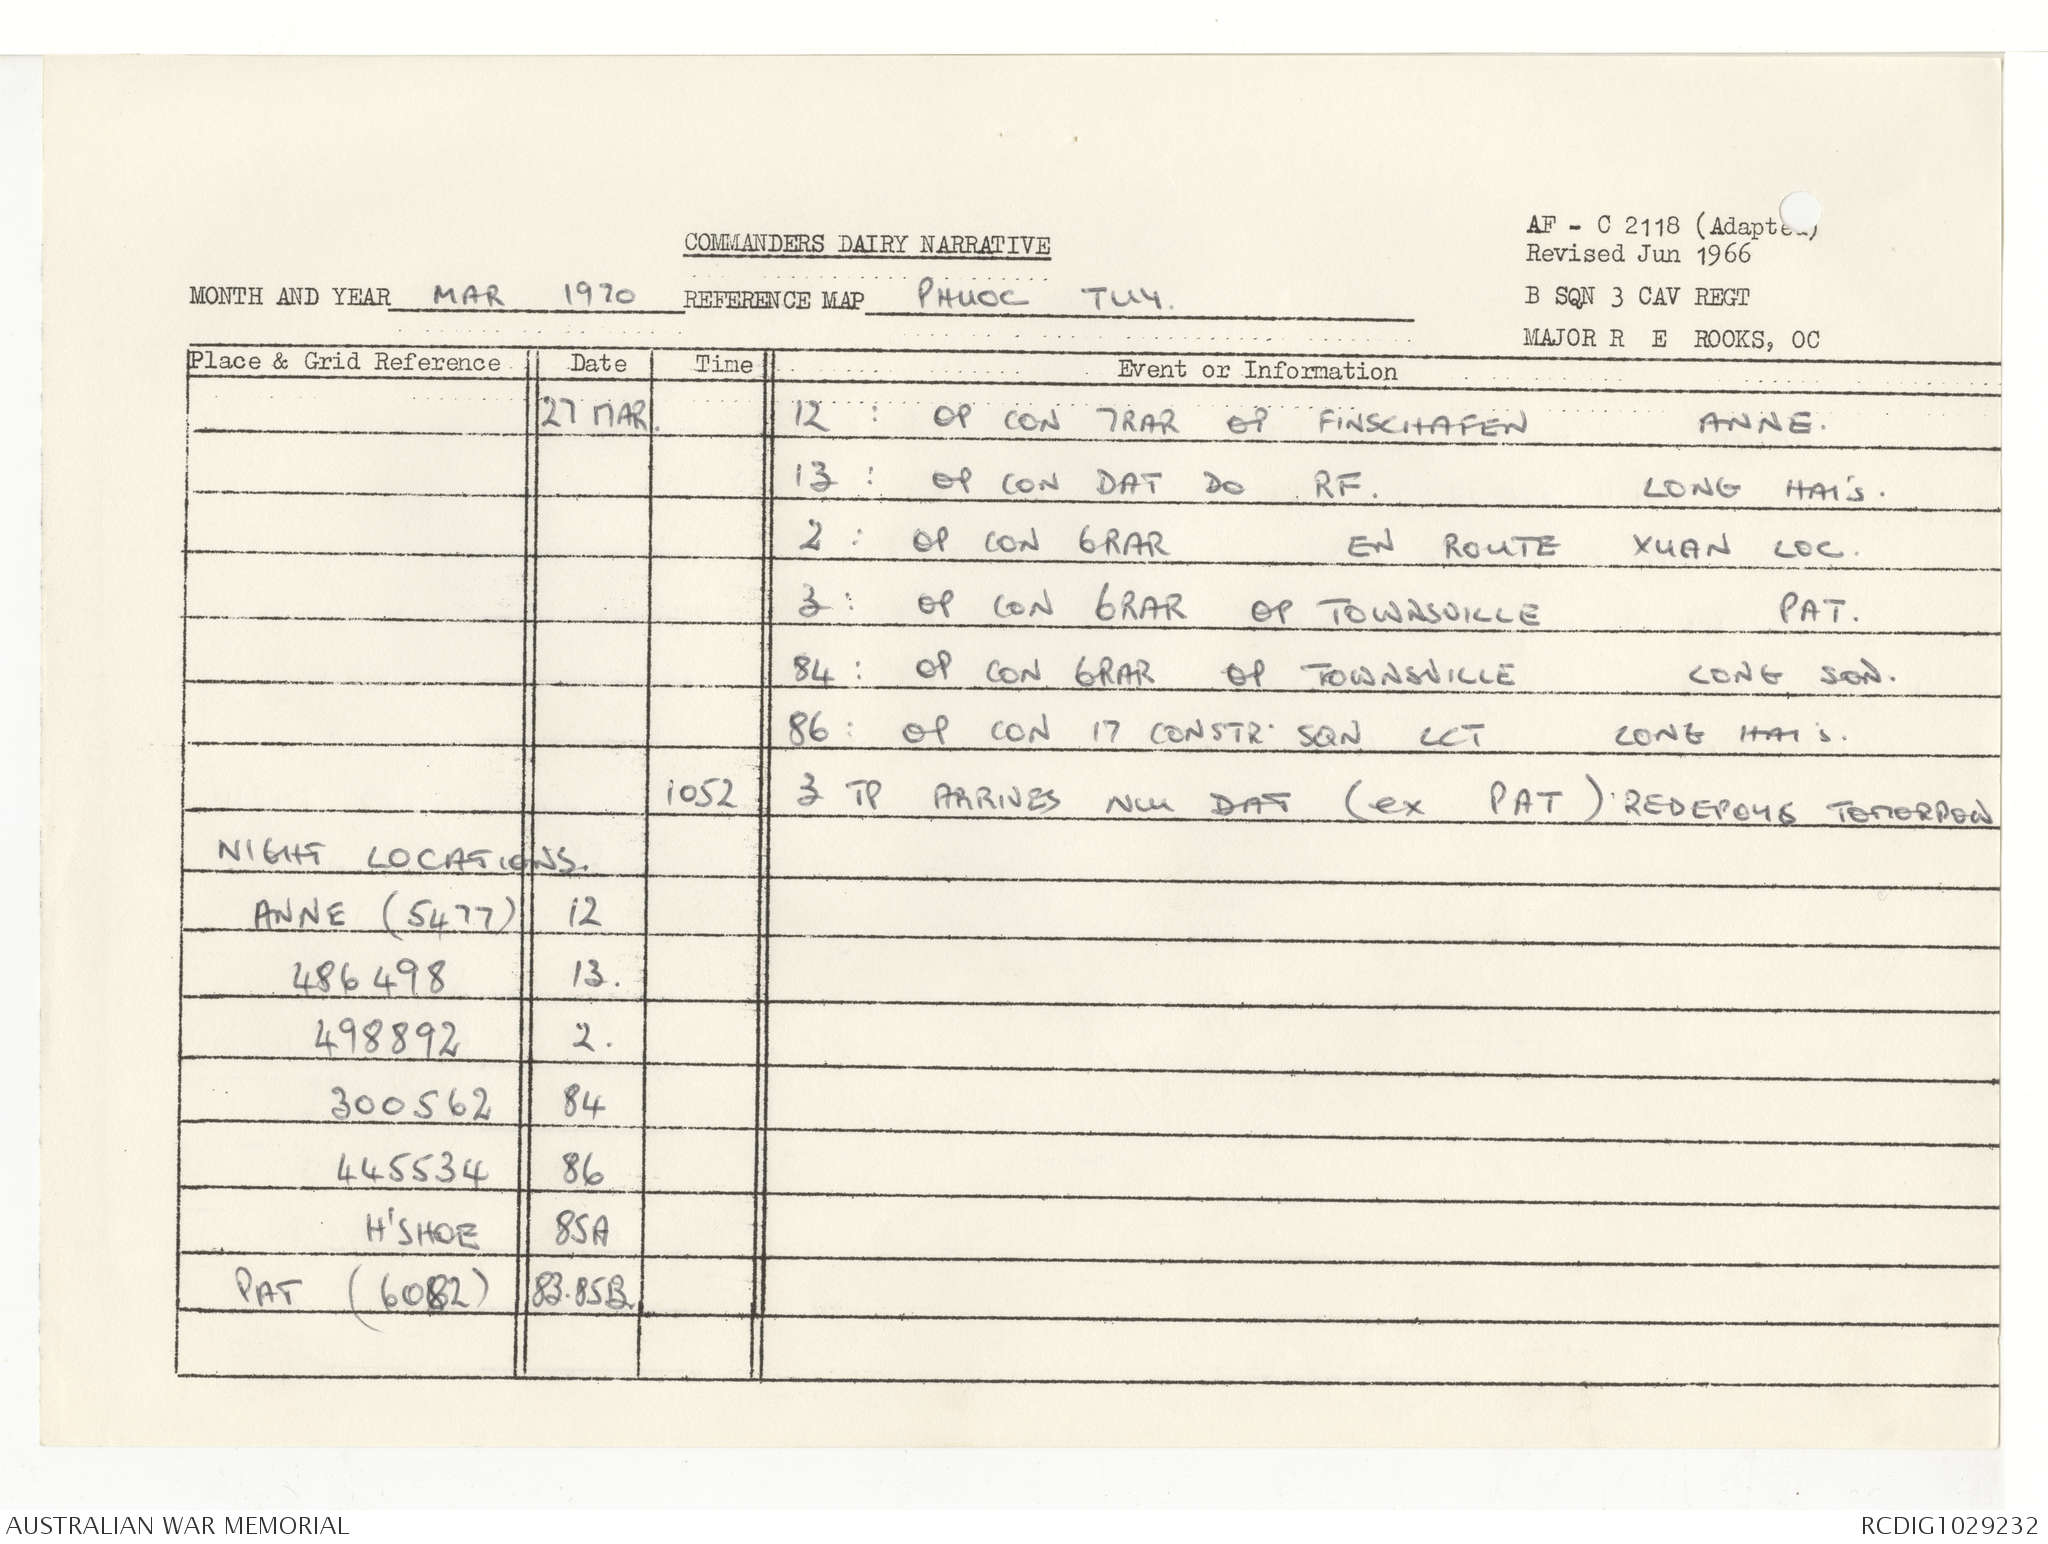 AF - C 2118 (Adapted)
COMMANDERS DAIRY NARRATIVE
Revised Jun 1966
MONTH AND YEAR MAR 1970 REFERENCE MAP PHUOC TUY.
B SQN 3 CAV REGT
MAJOR R E ROOKS, OC
Place & Grid Reference Date Time Event or Information
27 MAR. 12 : OP CON 7RAR OP FINSCHAFEN ANNE.
13 : OP CON DAT DO RF. LONG HAI'S.
2 : OP CON 6RAR EN ROUTE XUAN LOC.
3 : OP CON 6RAR OP TOWNSVILLE PAT.
84 : OP CON 6RAR OP TOWNSVILLE LONG SON.
86 : OP CON 17 CONSTR. SQN LCT LONG HAI'S.
1052 3 TP ARRIVES NUI DAT (ex PAT) REDEPOYS TOMORROW
NIGHT LOCATIONS.
ANNE (5477) 12
486498 13.
498892 2.
300562 84
445534 86
H'SHOE 85A
PAT (6082) 83.85B
AUSTRALIAN WAR MEMORIAL RCDIG1029232